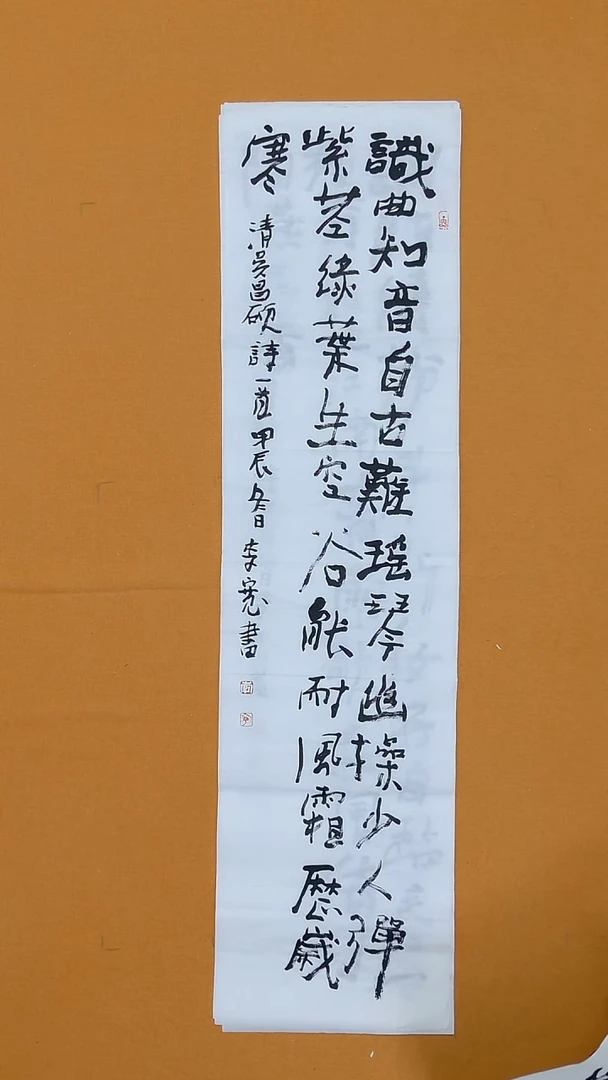 識曲知音自古難瑶琴幽操少人彈
紫莖緑葉生空谷能耐風霜歷歲
寒
清吴昌硕詩一首甲辰春日李寬書